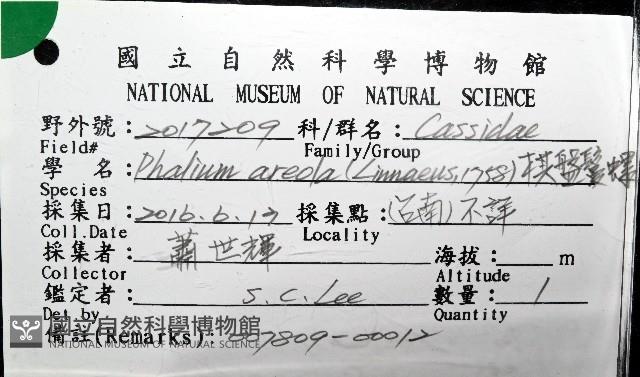 國立自然科學博物館
NATIONAL MUSEUM OF NATURAL SCIENCE
野外號：2017209 科/群名：Cassidae
Field# Family/Group
學 名：Phalium areola (Linnaeus, 1758) 棋盤鬘螺
Species
採集日：2016.6.17 採集點：(台南) 不詳
Coll.Date Locality
採集者：蕭世輝 海拔： m
Collector Altitude
鑑定者：S.C.Lee 數量：1
Det.by Quantity
備註(Remarks): 7809-00012
國立自然科學博物館
NATIONAL MUSEUM OF NATURAL SCIENCE